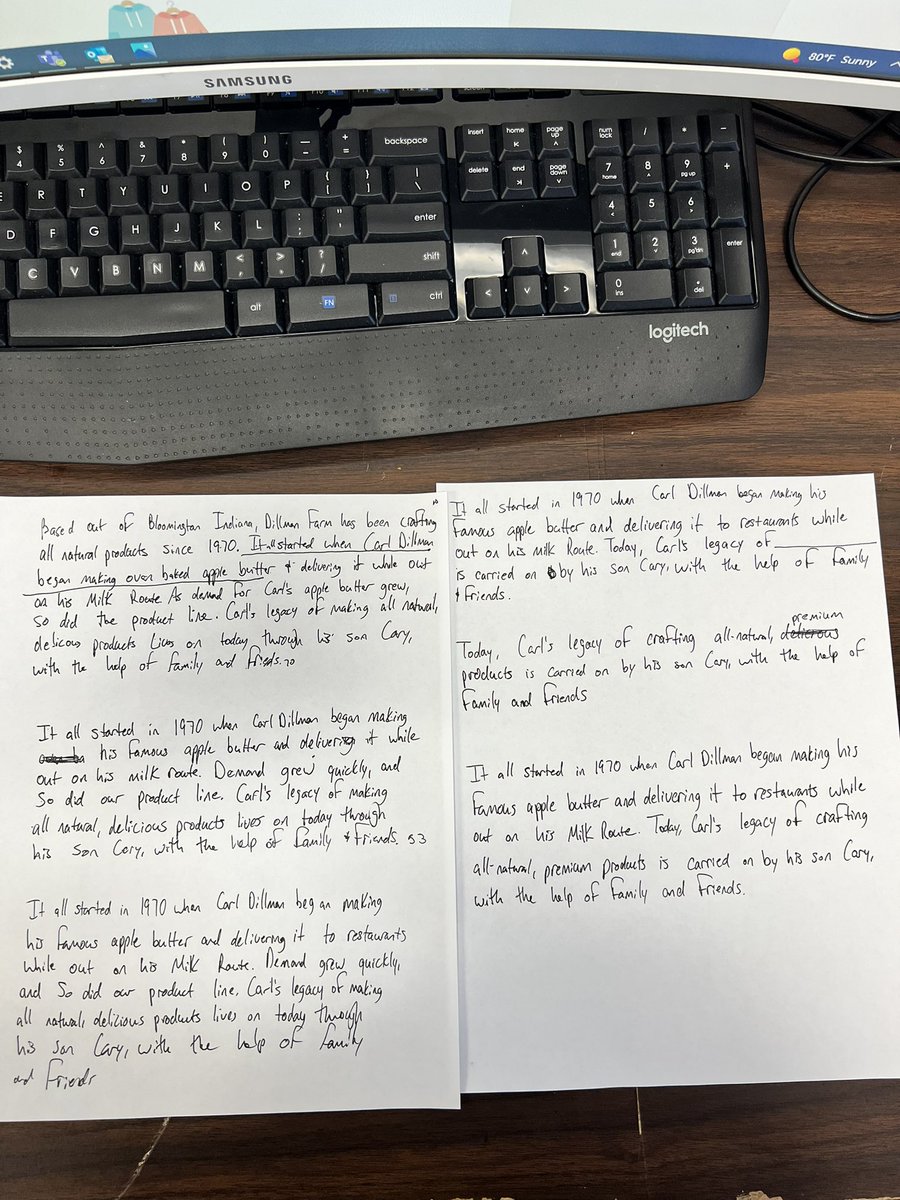 80°F Sunny
SAMSUNG
$ % ^ & * ( ) — + backspace
4 5 6 7 8 9 0 - =
insert home page up
num lock / * −
E R T Y U I O P { [ } ] | \
delete end page down
7 home 8 9 pg up +
D F G H J K L : ; " ' enter
4 5 6
C V B N M < , > . ? / shift
1 end 2 3 pg dn enter
alt FN ctrl
0 ins . del
logitech
Based out of Bloomington Indiana, Dillman Farm has been crafting
all natural products since 1970. It all started when Carl Dillman
began making oven baked apple butter & delivering it while out
on his Milk Route As demand for Carl's apple butter grew,
So did the product line. Carl's legacy of making all natural,
delicous products Lives on today through his son Cary,
with the help of family and friends. 70
It all started in 1970 when Carl Dillman began making
his famous apple butter and delivering it while
out on his milk route. Demand grew quickly, and
So did our product line. Carl's legacy of making
all natural, delicious products lives on today through
his Son Cary, with the help of family & friends. 53
It all started in 1970 when Carl Dillman began making
his famous apple butter and delivering it to restaurants
while out on his Milk Route. Demand grew quickly,
and So did our product line. Carl's legacy of making
all natural, delicious products lives on today through
his son Cary, with the help of family
and Friends
It all started in 1970 when Carl Dillman began making his
famous apple butter and delivering it to restaurants while
out on his Milk Route. Today, Carl's legacy of
is carried on by his son Cary, with the help of family
& friends.
premium
Today, Carl's legacy of crafting all-natural, delicious
products is carried on by his son Cary, with the help of
family and friends
It all started in 1970 when Carl Dillman began making his
famous apple butter and delivering it to restaurants while
out on his Milk Route. Today, Carl's legacy of crafting
all-natural, premium products is carried on by his son Cary,
with the help of family and friends.